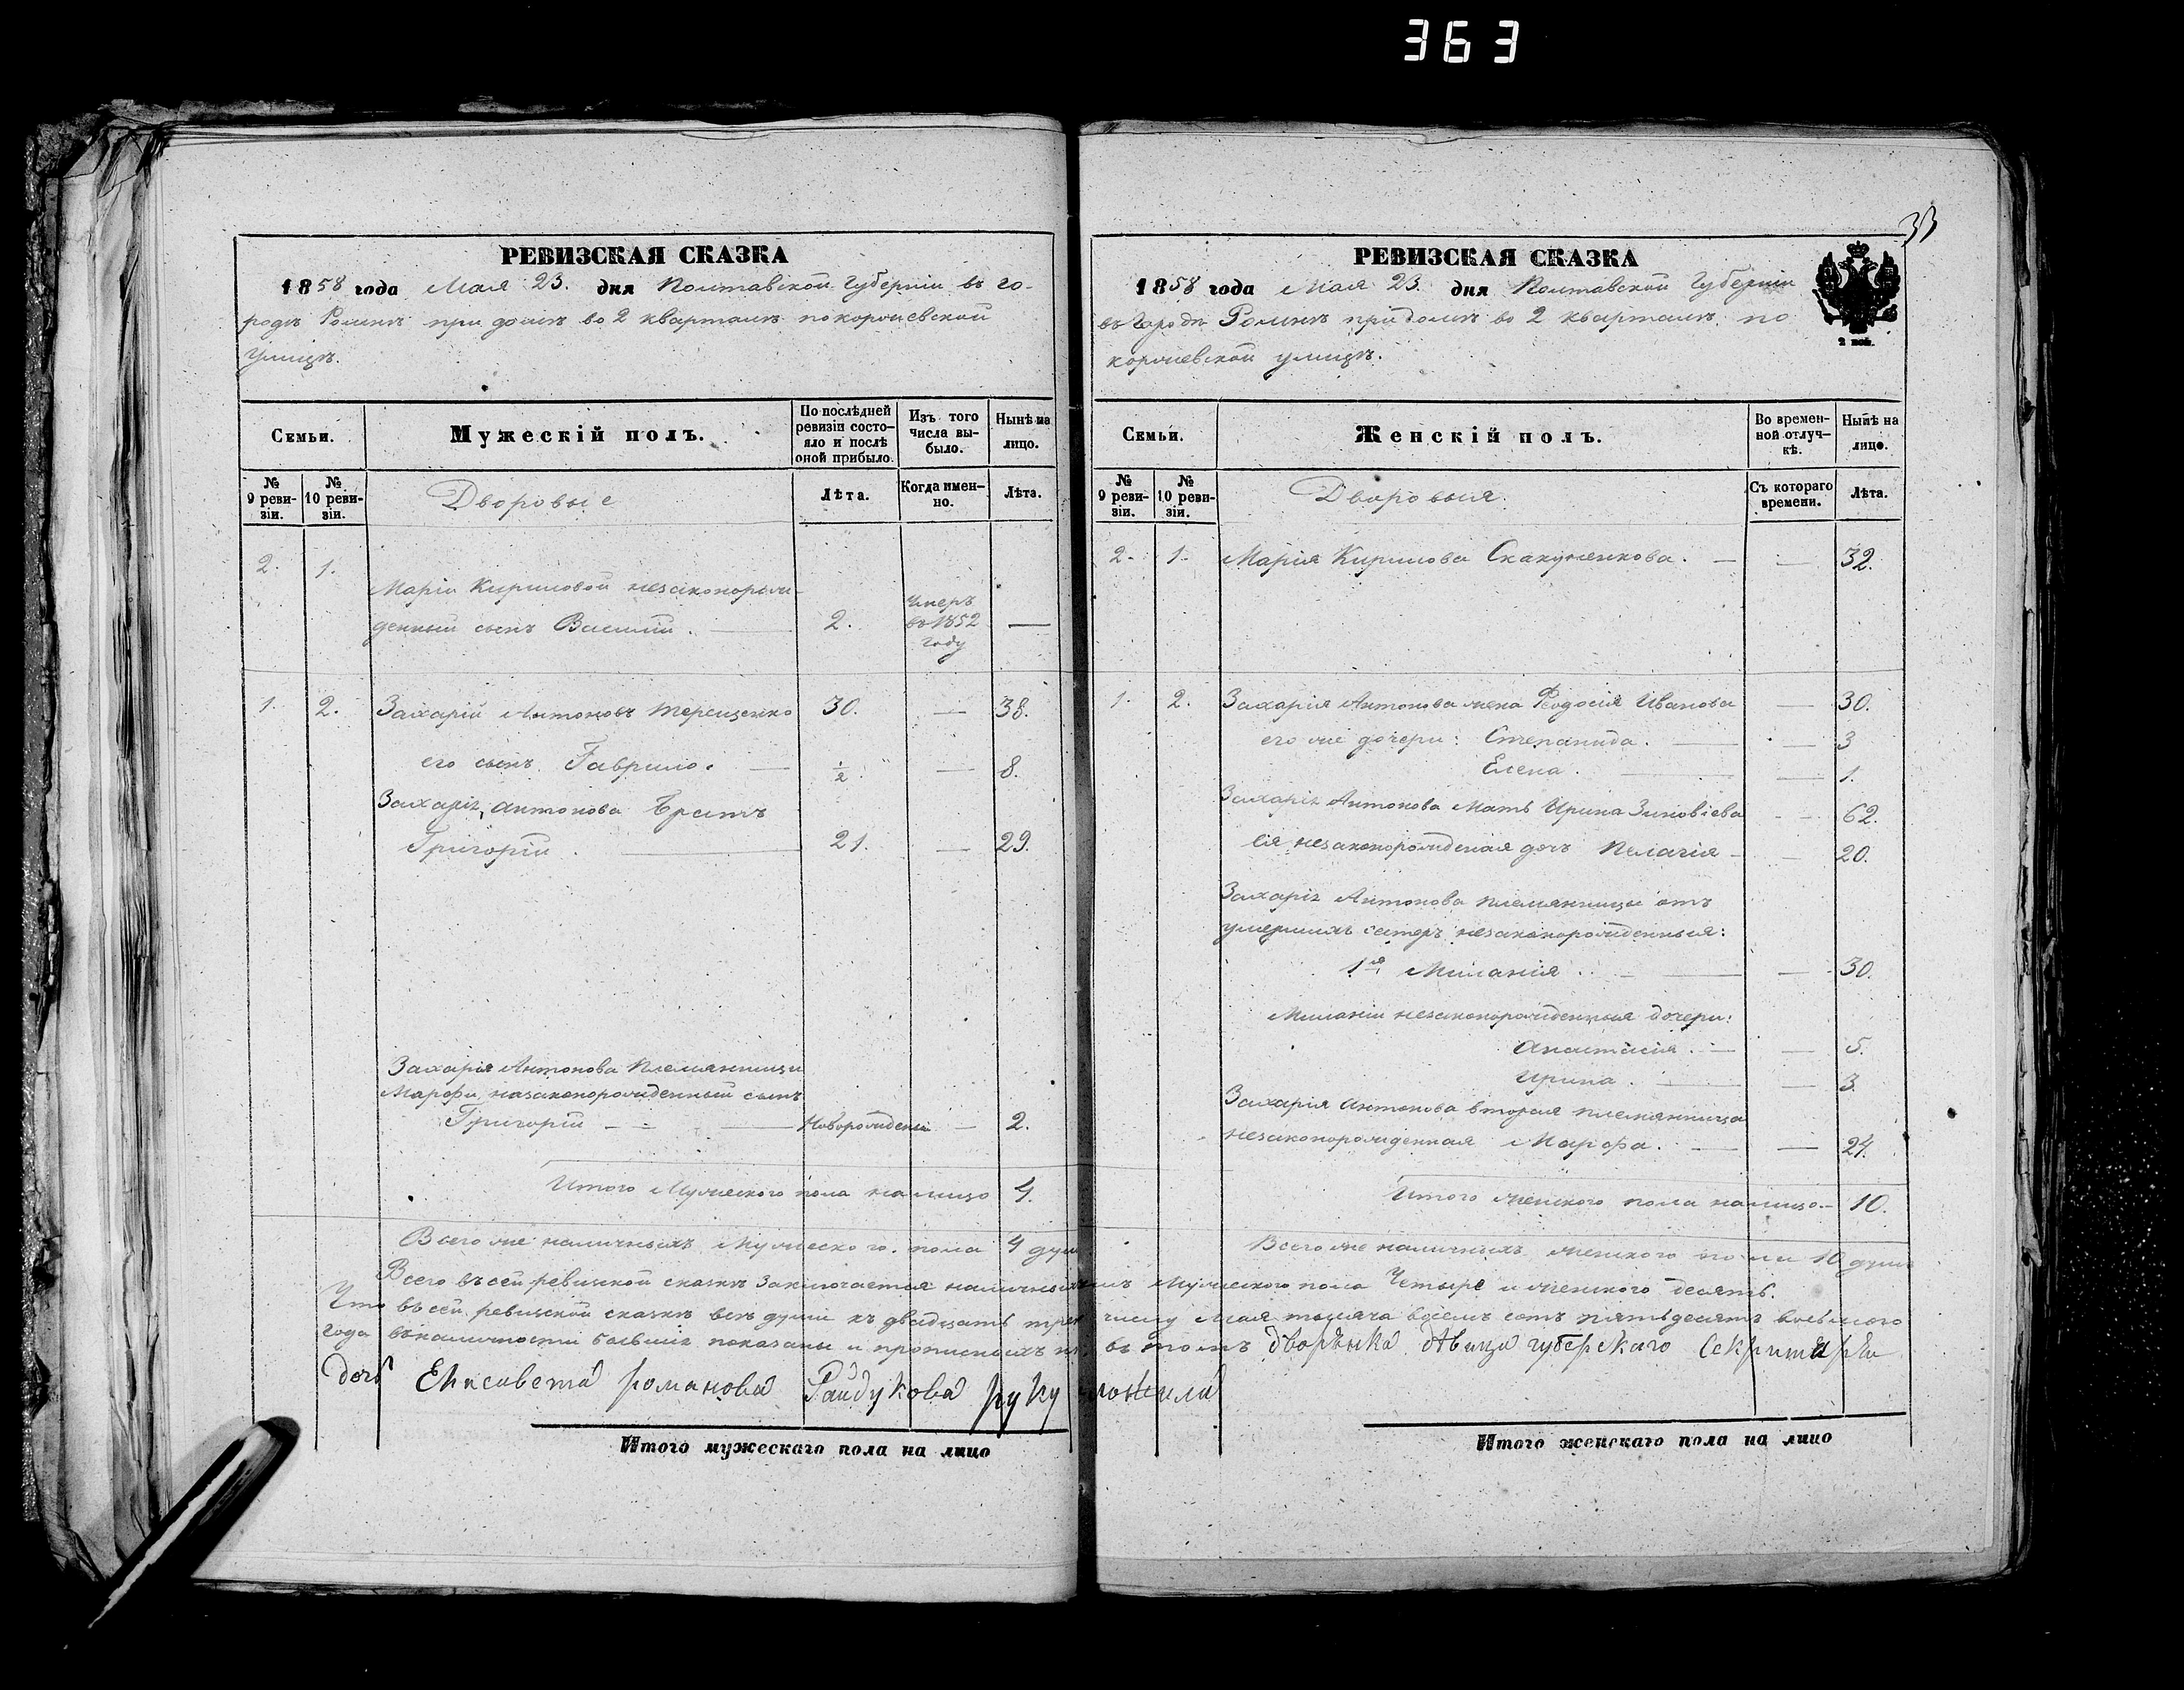 363
РЕВИЗСКАЯ СКАЗКА
1858 года Мая 23. дня Полтавской Губерніи въ го-
родѣ Ромнѣ при домѣ во 2 кварталѣ по
Улицѣ.
Семьи.
Мужескій полъ.
По послѣдней ревизіи состояло и послѣ оной прибыло.
Изъ того числа выбыло.
Нынѣ на лицо.
№ 9 ревизіи.
№ 10 ревизіи.
Дворовые
Лѣта.
Когда именно.
Лѣта.
2. 1.
Маріи Кириловой незаконорож-
денный сынъ Василій. 2. Умеръ въ 1852 году —
1. 2. Захарій Антоновъ Терещенко 30. — 38.
его сынъ Гаврило. ½ — 8.
Захарія Антонова Братъ
Григорій. 21. — 29.
Захарія Антонова Племянницы
Марфы незаконорожденный сынъ
Григорій — Новорожденый — 2.
Итого Мужескаго пола на лицо 4.
Всего же наличныхъ Мужеского пола 4 душ
РЕВИЗСКАЯ СКАЗКА
33
1858 года Мая 23. дня Полтавской Губерніи
въ Городѣ Ромнѣ при домѣ во 2 кварталѣ по
улицѣ.
2 коп.
Семьи.
Женскій полъ.
Во временной отлучкѣ.
Нынѣ на лицо.
№ 9 ревизіи.
№ 10 ревизіи.
Дворовыя.
Съ котораго времени.
Лѣта.
2. 1. Марія Кирилова Скакуненкова. — — 32.
1. 2. Захарія Антонова жена Феодосія Иванова — 30.
его же дочери: Степанида. — 3
Елена. — 1.
Захарія Антонова Мать Ирина Зиновіева — 62.
ея незаконорожденая дочь Пелагія — 20.
Захарія Антонова племянницы отъ
умершихъ сестеръ незаконорожденныя:
1я Миланія. — 30.
Миланіи незаконорожденныя дочери:
Анастасія. — 5.
Ирина. — 3.
Захарія Антонова вторая племянница
незаконорожденная Марфа. — 24.
Итого женского пола на лицо — 10.
Всего же наличныхъ женского пола 10 душъ
Всего въ сей ревизкой сказкѣ Заключается наличныхъ Мужеского пола Четыре и женского десять.
Что въ сей ревизкой сказкѣ всѣ души къ двадцать числу Мая тысяча восемь сотъ пятьдесятъ восьмого
года въ наличности бывшія показаны и въ томъ дворѣнка дѣвица губерскаго Секритарѣ
дочь Елисавета романова Райдукова руку
Итого мужескаго пола на лицо
Итого женскаго пола на лицо